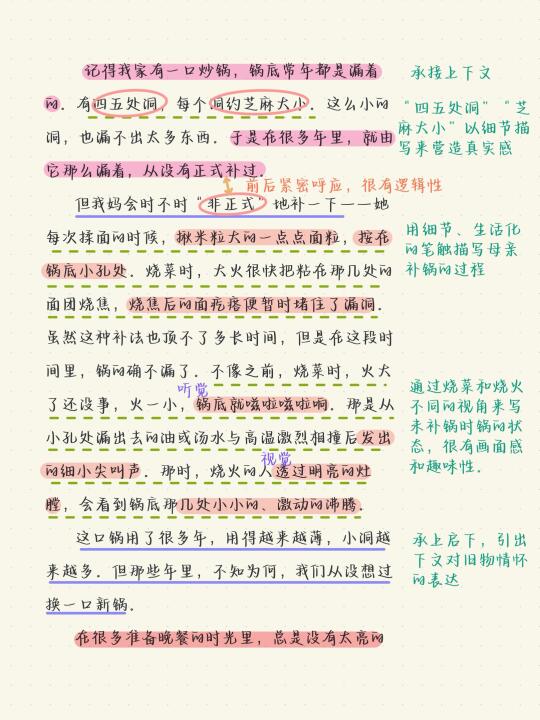 记得我家有一口炒锅，锅底常年都是漏着
承接上下文
的．有四五处洞，每个洞约芝麻大小．这么小的
洞，也漏不出太多东西．于是在很多年里，就由
它那么漏着，从没有正式补过．
"四五处洞" "芝
麻大小"以细节描
写来营造真实感
前后紧密呼应，很有逻辑性
但我妈会时不时"非正式"地补一下——她
每次揉面的时候，揪米粒大的一点点面粒，按在
锅底小孔处．烧菜时，大火很快把粘在那几处的
面团烧焦，烧焦后的面疙瘩便暂时堵住了漏洞．
用细节、生活化
的笔触描写母亲
补锅的过程
虽然这种补法也顶不了多长时间，但是在这段时
间里，锅的确不漏了．不像之前，烧菜时，火大
听觉
了还没事，火一小，锅底就嗞啦嗞啦响．那是从
小孔处漏出去的油或汤水与高温激烈相撞后发出
视觉
的细小尖叫声．那时，烧火的人透过明亮的灶
膛，会看到锅底那几处小小的、激动的沸腾．
通过烧菜和烧火
不同的视角来写
未补锅时锅的状
态，很有画面感
和趣味性．
这口锅用了很多年，用得越来越薄，小洞越
来越多．但那些年里，不知为何，我们从没想过
换一口新锅．
承上启下，引出
下文对旧物情怀
的表达
在很多准备晚餐的时光里，总是没有太亮的